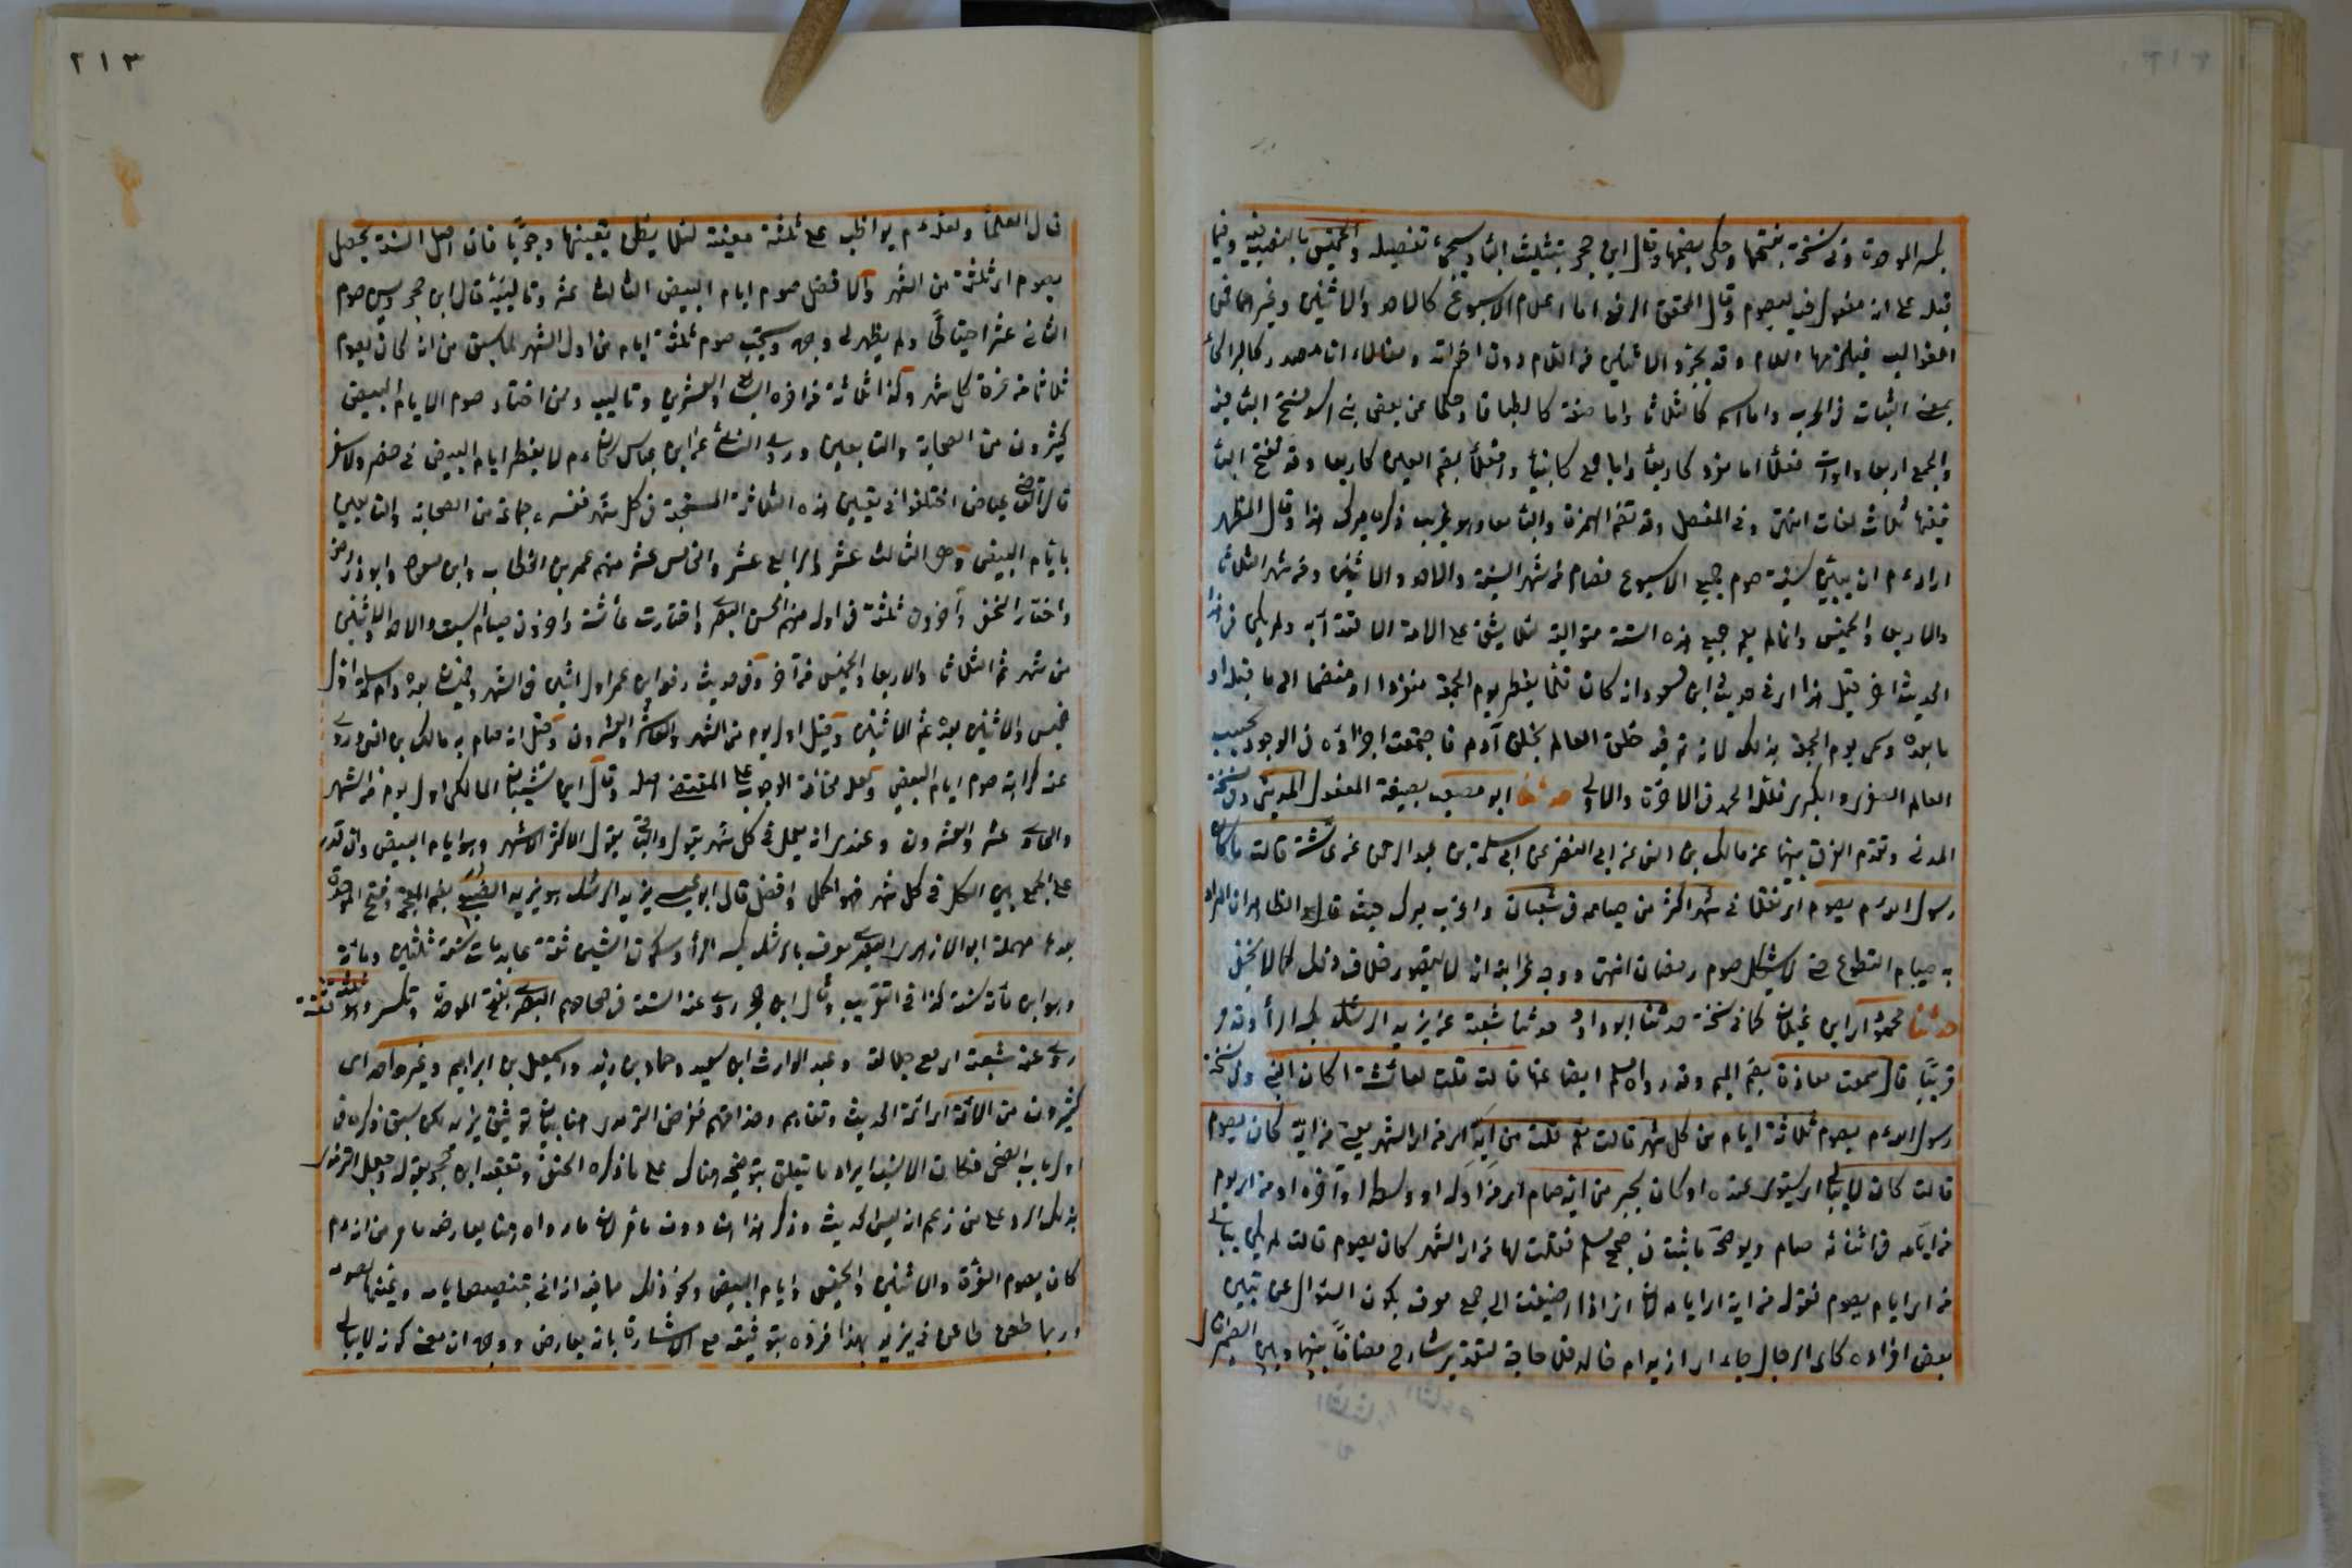 بكسر الموحدة وفي نسخة بفتحها وحكي بضمها وقال ابن حجر بتثليث الباء وسيجئ تفصيله والخميس بالنصب فيه وفيما
قبله على انه مفعول فيه ليصوم وقال المحقق الرضى اما اعلام الاسبوع كالاحد والاثنين وغيرهما فمن
الغوالب فيلزمها اللام وقد يجرد الاثنين من اللام دون اخواته والثلاثاء ان مصدر كالبراكاء
بمعنى الثبات في الحرب واما اسم كالثلاثا واما صفة كالطباقا وحكى عن بعض بني اسد فتح الباء فيه
والجمع اربعاوات افعلاء اما مفرد كاربعاء واما جمع كانبياء وافعلاء بضم العين كاربعاء وقد تفتح الباء
ففيها ثلاث لغات انتهى وفي المفصل وقد تضم الهمزة والباء معا وهو غريب ذكره ميرك هذا وقال المظهر
اراد ءم ان يبين سنية صوم جميع الاسبوع فصام من شهر السبت والاحد والاثنين ومن شهر الثلاثاء
والاربعاء والخميس وانما لم يصم جميع هذه الستة متوالية لئلا يشق على الامة الاقتداء به ولم يكن في هذا
الحديث ذكر الجمعة قيل هذا امر في حديث ابن مسعود انه كان قلما يفطر يوم الجمعة منفردا او منضما الى ما قبله او
ما بعده وسمى يوم الجمعة بذلك لانه تم فيه خلق العالم بخلق آدم فاجتمعت اجزاؤه في الوجود بحسب
العالم الصغرى والكبرى فلله الحمد في الآخرة والاولى حدثنا ابو مصعب بصيغة المفعول المديني وفي نسخة
المدني وتقدم الفرق بينهما عن مالك بن انس عن ابي النضر عن ابي سلمة بن عبد الرحمن عن عائشة قالت ما كان
رسول الله ءم يصوم اى نفلا في شهر اكثر من صيامه في شعبان واغرب ميرك حيث قال والظاهر ان المراد
به صيام التطوع حتى لا يشكل صوم رمضان انتهى ووجه غرابته انه لا يتصور خلاف ذلك كما لا يخفى
حدثنا محمود اى ابن غيلان كما في نسخة حدثنا ابو داود حدثنا شعبة عن يزيد الرشك بكسر الراء وقد مر
قريبا قال سمعت معاذة بضم الميم وقد رواه مسلم ايضا عنها قالت قلت لعائشة اكان النبي وفي نسخة
رسول الله ءم يصوم ثلاثة ايام من كل شهر قالت نعم قلت من اية اى من اى الشهر يعني من اية كان يصوم
قالت كان لا يبالى اى يستوى عنده او كان يخبر من اية صام اى من اوله او وسطه او آخره او من اى يوم
من ايامه في اثنائه صام ويوضحه ما ثبت في صحيح مسلم فقلت لها من اى الشهر كان يصوم قالت لم يكن يبالى
من اى ايام يصوم فقوله من اية اى ايامه لان اى اذا اضيفت الى جمع معرف يكون السؤال عن تعيين
بعض افراده كاى الرجال جاء اى ازيد ام خالد فلا حاجة لتقدير شارح مضافا بينها وبين الضمير قال
٢١٣
قال العلماء ولعله ءم لم يواظب على ثلثة معينة لئلا يظن تعيينها وجوبا فان اصل السنة يحصل
بصوم اى ثلثة من الشهر والافضل صوم ايام البيض الثالث عشر وتالييه قال ابن حجر ويسن صوم
الثاني عشر احتياطا ولم يظهر لى وجهه ويستحب صوم ثلثة ايام من اول الشهر لما سبق من انه كان يصوم
ثلاثا من غرة كل شهر وكذا ثلاثة من آخره السابع والعشرين وتالييه وممن اختار صوم الايام البيض
كثيرون من الصحابة والتابعين وروى النسائى عن ابن عباس كان ءم لا يفطر ايام البيض في حضر ولا سفر
قال القاضى عياض اختلفوا في تعيين هذه الثلاثة المستحبة في كل شهر ففسره جماعة من الصحابة والتابعين
بايام البيض وهى الثالث عشر والرابع عشر والخامس عشر منهم عمر بن الخطاب وابن مسعود وابو ذر رض
واختار النخعى وآخرون ثلثة في اوله منهم الحسن البصرى واختارت عائشة وآخرون صيام السبت والاحد والاثنين
من شهر ثم الثلاثاء والاربعاء والخميس من آخر وفي حديث رفعه ابن عمر اول اثنين في الشهر وخميسان بعده وام سلمة اول
خميس والاثنين بعده ثم الاثنين وقيل اول يوم من الشهر والعاشر والعشرون وقيل انه صام به مالك بن انس وروى
عنه كراهة صوم ايام البيض ولعله مخافة الوجوب على المقتضى اصله وقال ابن شعبان المالكى اول يوم من الشهر
والحادى عشر والعشرون وعندى انه يعمل في كل شهر بقول والباقى بقول الاكثر الاشهر وهو ايام البيض وان قدر
على الجمع بين الكل في كل شهر فهو اكمل وافضل قال ابو عيسى يزيد الرشك هو يزيد الضبعى بضم المعجمة وفتح الموحدة
بعدها مهملة ابو الازهر البصرى يعرف بالرشك بكسر الراء وسكون الشين ثقة عابد مات سنة ثلثين ومائة
وهو ابن مائة سنة كذا في التقريب وقال ابن حجر روى عنه الستة في صحاحهم البصرى بفتح الموحدة وتكسر وهو ثقة
روى عنه شعبة اى مع جلالته وعبد الوارث ابن سعيد وحماد بن زيد واسمعيل بن ابراهيم وغير واحد اى
كثيرون من الائمة اى ائمة الحديث ونقادهم وحذاقهم فغرض الترمذى هنا بيان توثيق يزيد لكن سبق ذكره في
اول باب الضحى فكان الانسب ايراد ما يتعلق بتوضيحه هناك على ما ذكره الحنفى وتعقبه ابن حجر بقوله وجعل الترمذى
بذلك الرد على من زعم انه لين الحديث وذكر هذا هنا دون ما مر لان ما رواه هنا يعارضه ما مر من انه ءم
كان يصوم الغرة والاثنين والخميس وايام البيض ونحو ذلك
وربما طعن طاعن في يزيد بهذا فرده بتوثيقه مع الاشارة بانه يعارض ووجهه ان معنى كونه لا يبالى